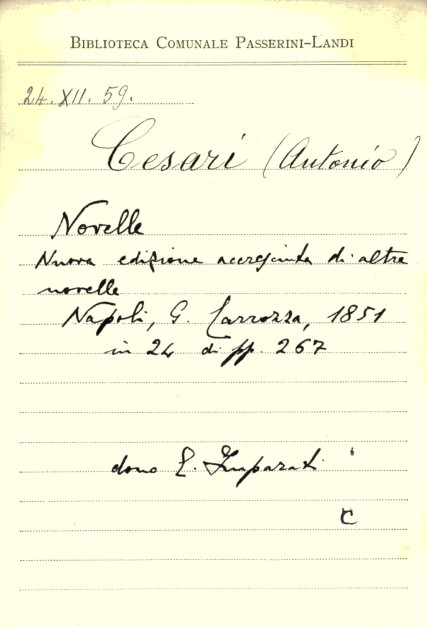 BIBLIOTECA COMUNALE PASSERINI-LANDI
24.XII.59.
Cesari (Antonio)
Novelle
Nuova edizione accresciuta di altre
novelle
Napoli, G. Carrozza, 1851
in 24 di pp. 267
dono E. Imparati
C